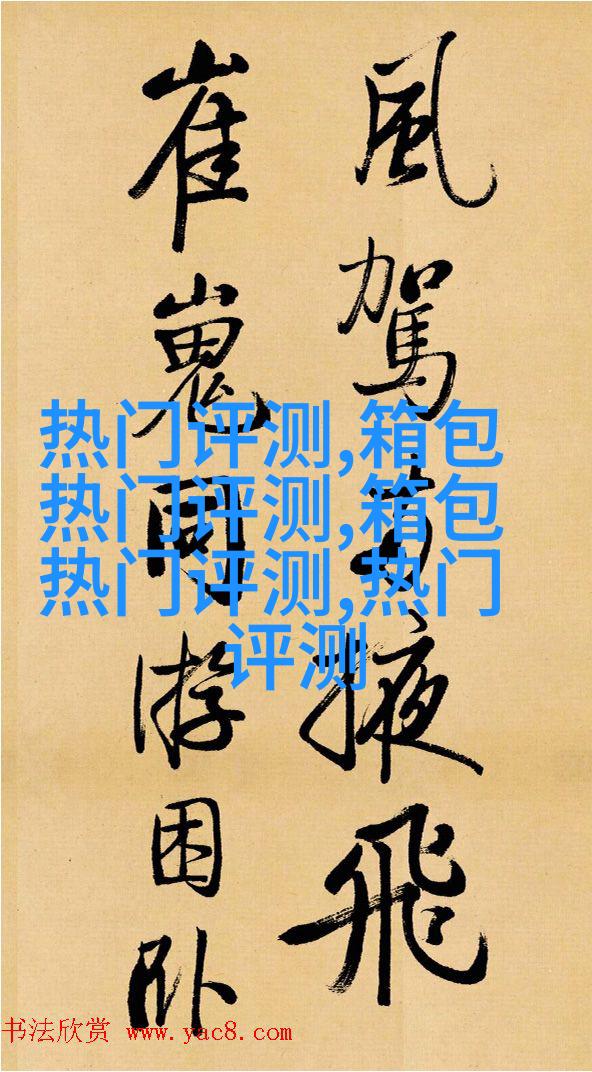 風駕掖飛
崔嵬游困卧
热门评测,箱包
热门评测,箱包
热门评测,热门
评测
书法欣赏 www.yac8.com